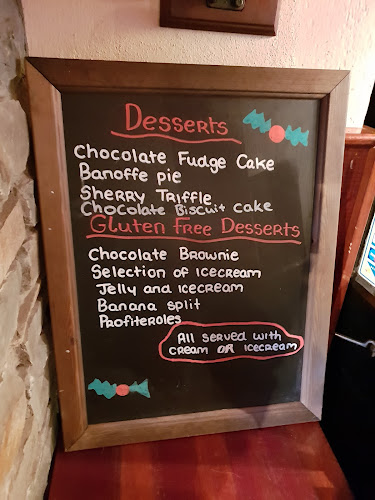 Desserts
Chocolate Fudge Cake
Banoffe pie
Sherry Triffle
Chocolate Biscuit cake
Gluten Free Desserts
Chocolate Brownie
Selection of icecream
Jelly and icecream
Banana split
Profiteroles
All served with
cream OR icecream